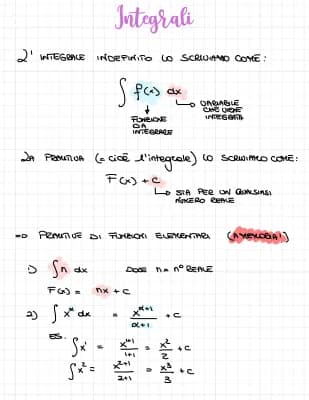 Integrali
L' INTEGRALE INDEFINITO LO SCRIVIAMO COME:
∫ f(x) dx
↓ FUNZIONE DA INTEGRARE
↳ VARIABILE CHE VIENE INTEGRATA
LA PRIMITIVA (= cioè l'integrale) LO SCRIVIAMO COME:
F(x) + C
↳ STA PER UN QUALSIASI
NUMERO REALE
→ PRIMITIVE DI FUNZIONI ELEMENTARI (A MEMORIA!)
1) ∫n dx DOVE n = n° REALE
F(x) = nx + C
2) ∫ x^α dx = x^(α+1)/(α+1) + C
ES.
∫x¹ = x^(1+1)/(1+1) = x²/2 + C
∫x² = x^(2+1)/(2+1) = x³/3 + C